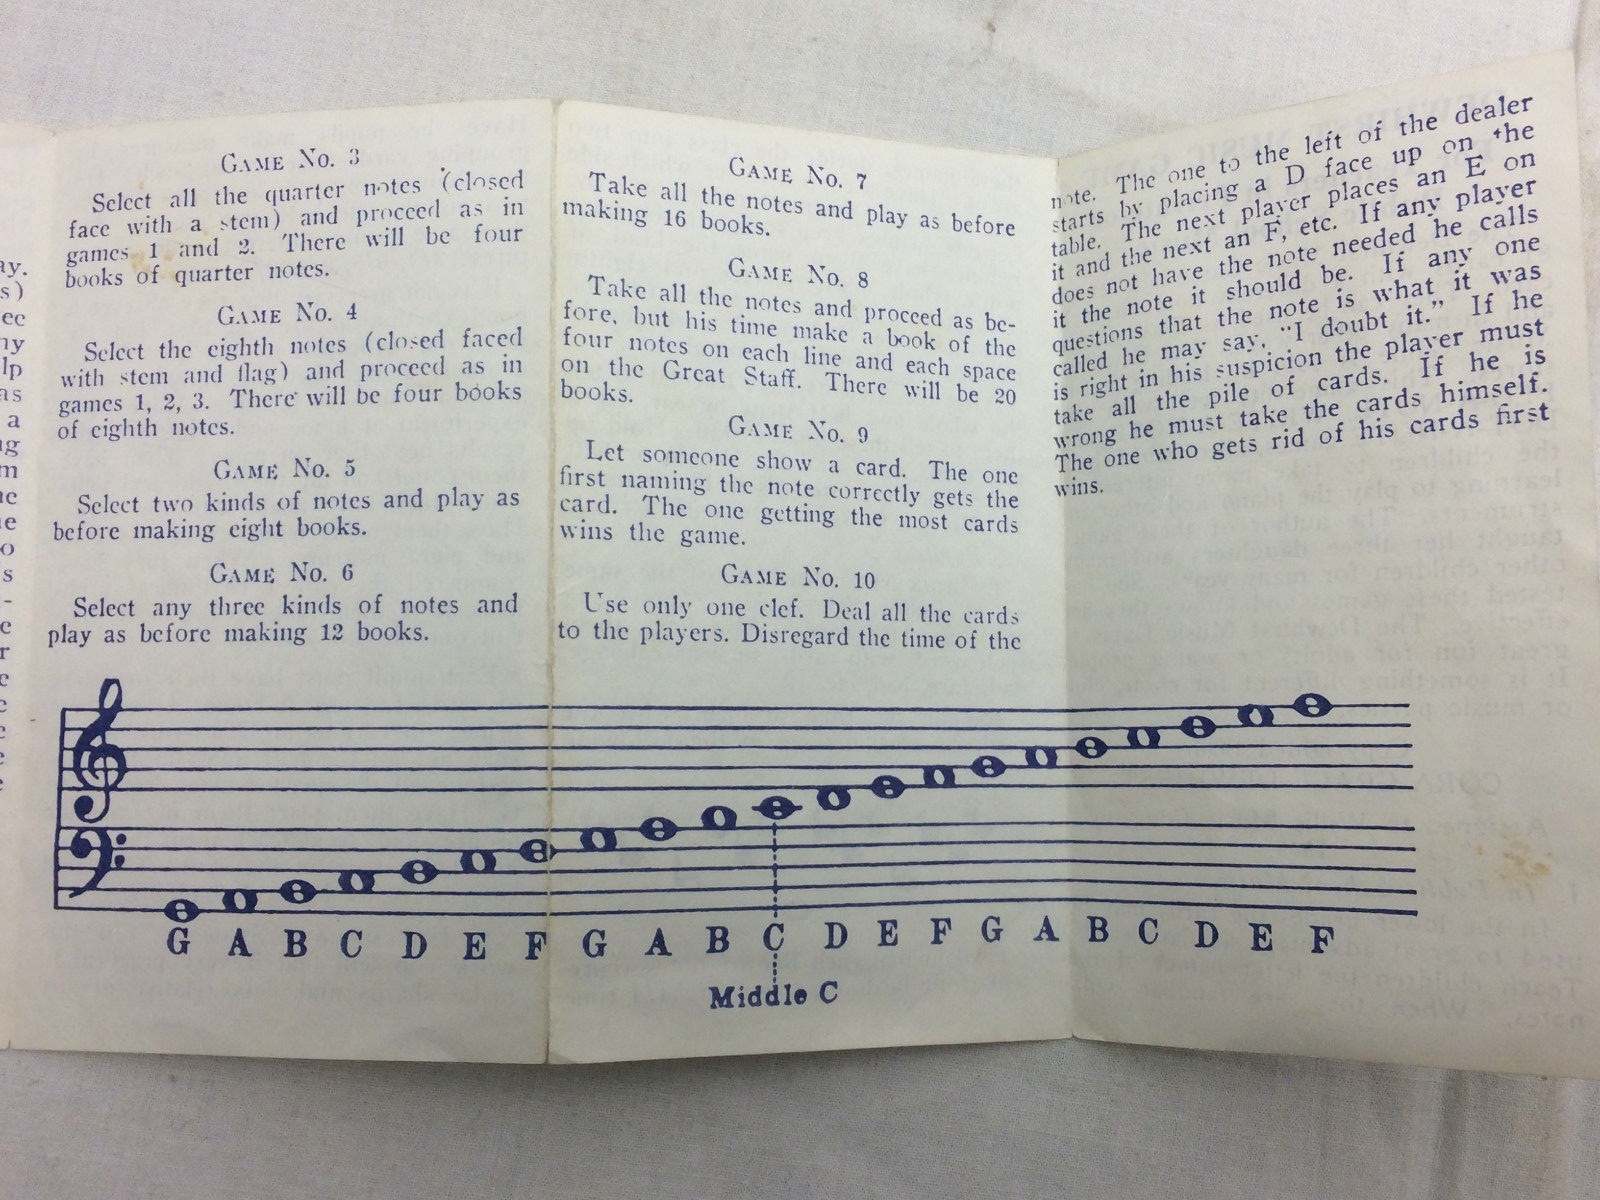 ay.
s)
ec
ny
lp
as
a
ng
m
ne
ue
o
s
-
e
r
e
c
e
e
e
GAME No. 3
Select all the quarter notes (closed
face with a stem) and proceed as in
games 1 and 2. There will be four
books of quarter notes.
GAME No. 4
Select the eighth notes (closed faced
with stem and flag) and proceed as in
games 1, 2, 3. There will be four books
of eighth notes.
GAME No. 5
Select two kinds of notes and play as
before making eight books.
GAME No. 6
Select any three kinds of notes and
play as before making 12 books.
GAME No. 7
Take all the notes and play as before
making 16 books.
GAME No. 8
Take all the notes and proceed as be-
fore, but his time make a book of the
four notes on each line and each space
on the Great Staff. There will be 20
books.
GAME No. 9
Let someone show a card. The one
first naming the note correctly gets the
card. The one getting the most cards
wins the game.
GAME No. 10
Use only one clef. Deal all the cards
to the players. Disregard the time of the
note. The one to the left of the dealer
starts by placing a D face up on the
table. The next player places an E on
it and the next an F, etc. If any player
does not have the note needed he calls
it the note it should be. If any one
questions that the note is what it was
called he may say, "I doubt it." If he
is right in his suspicion the player must
take all the pile of cards. If he is
wrong he must take the cards himself.
The one who gets rid of his cards first
wins.
G A B C D E F G A B C D E F G A B C D E F
Middle C